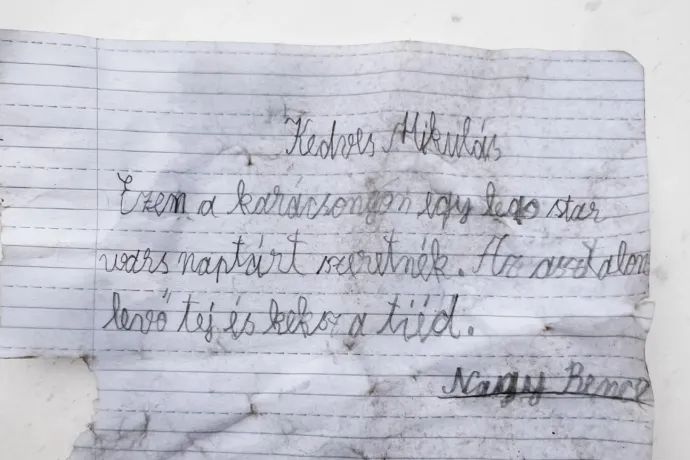 Kedves Mikulás
Ezem a karácsonyon egy lego star
wars naptárt szeretnék. Az asztalon
levő tej és keksz a tiéd.
Nagy Bence